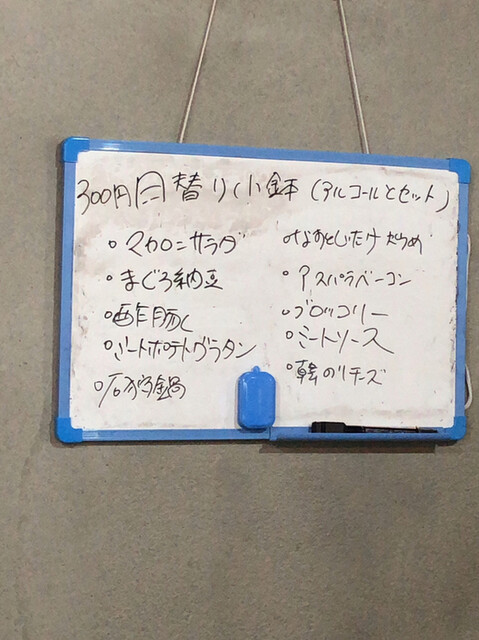 300円日替り小鉢(アルコールとセット)
・マカロニサラダ
・まぐろ納豆
・酢豚
・ミートポテトグラタン
・石狩鍋
・アスパラベーコン
・ブロッコリー
・ミートソース
・韓のりチーズ